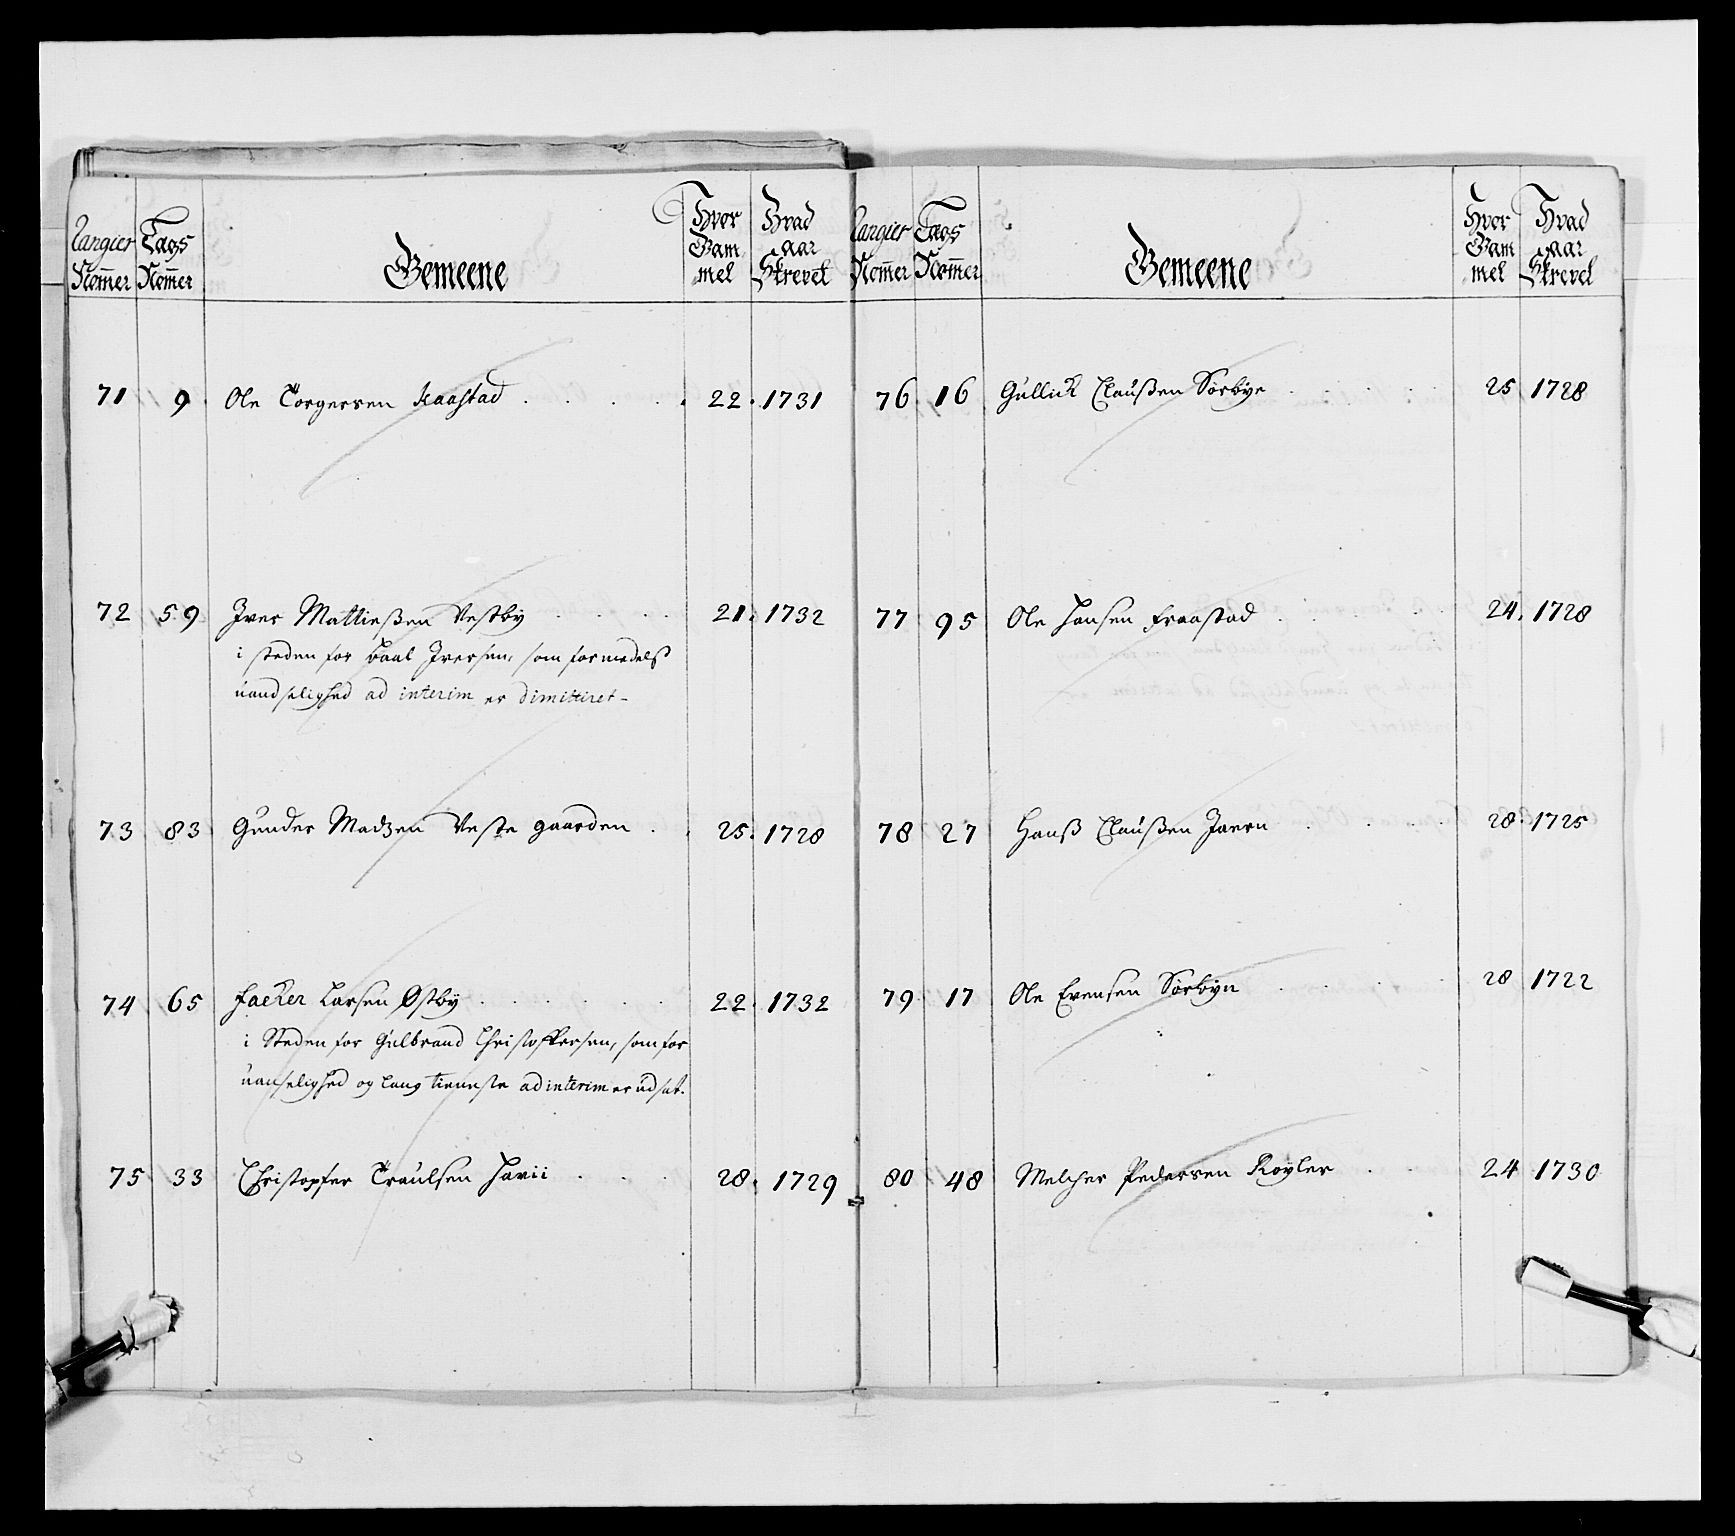 Rangier Nom̄er
Lags Nom̄er
Gemeene
Hvor Gam mel
Hvad aar Skrevet
71 9 Ole Torgersen Kaastad 22. 1731
72 59 Iver Mattießen Vestby 21. 1732
i steden for Paal Iversen, som formedelst
uandselighed ad interim er dimittiret-
73 83 Gunder Madzen Veste gaarden 25. 1728
74 65 Larsen Østby 22. 1732
i Steden for Gulbrand Christoffersen, som for
uanselighed og lang tieneste ad interim er udsat.
75 33 Christopher Traulsen 28. 1729
Rangier Nom̄er
Lags Nom̄er
Gemeene
Hvor Gam mel
Hvad aar Skrevet
76 16 Gullick Claußen Sørbye 25 1728
77 95 Ole Hansen Fraastad 24. 1728
78 27 Hanß Claußen Jaern 28. 1725
79 17 Ole Evensen Sørbye 28 1722
80 48 Melcher Pedersen 24 1730